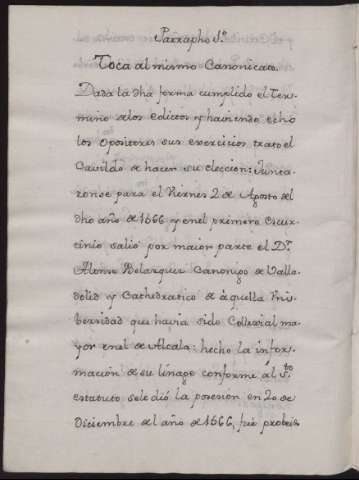 Parrapho 5º
Toca al mismo Canonicato.
Dada la dha forma cumplido el Ter-
mino delos Edictos y haviendo echo
los opositores sus exercicios trato el
Cavildo de hacer su eleccion: Junta-
ronse para el Viernes 2 de Agosto del
dho año de 1666 y en el primero Escur-
cinio salio por maior parte el Dr.
Alonso Belazquez Canonigo de Valla-
dolid y Cathedratico de aquella Uni-
bersidad que havia sido Collexial ma-
yor en el de Alcala: hecho la infor-
mación de su linage conforme al Sto
estatuto sele dió la posesion en 20 de
Diciembre del año de 1666, fue probeido